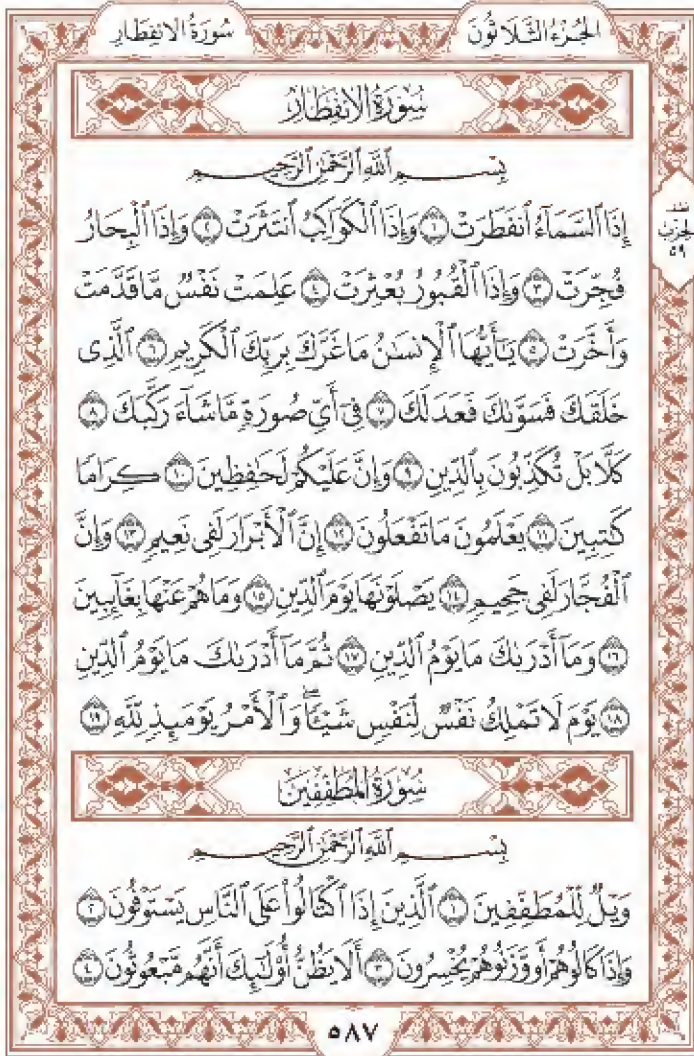 الجُزْءُ الثَّلَاثُونَ سُورَةُ الانفِطَارِ
سُورَةُ الانفِطَارِ
بِسْمِ ٱللَّهِ ٱلرَّحْمَٰنِ ٱلرَّحِيمِ
إِذَا ٱلسَّمَآءُ ٱنفَطَرَتْ ١ وَإِذَا ٱلْكَوَاكِبُ ٱنتَثَرَتْ ٢ وَإِذَا ٱلْبِحَارُ
فُجِّرَتْ ٣ وَإِذَا ٱلْقُبُورُ بُعْثِرَتْ ٤ عَلِمَتْ نَفْسٌ مَّا قَدَّمَتْ
وَأَخَّرَتْ ٥ يَٰٓأَيُّهَا ٱلْإِنسَٰنُ مَا غَرَّكَ بِرَبِّكَ ٱلْكَرِيمِ ٦ ٱلَّذِى
خَلَقَكَ فَسَوَّىٰكَ فَعَدَلَكَ ٧ فِىٓ أَىِّ صُورَةٍ مَّا شَآءَ رَكَّبَكَ ٨
كَلَّا بَلْ تُكَذِّبُونَ بِٱلدِّينِ ٩ وَإِنَّ عَلَيْكُمْ لَحَٰفِظِينَ ١٠ كِرَامًا
كَٰتِبِينَ ١١ يَعْلَمُونَ مَا تَفْعَلُونَ ١٢ إِنَّ ٱلْأَبْرَارَ لَفِى نَعِيمٍ ١٣ وَإِنَّ
ٱلْفُجَّارَ لَفِى جَحِيمٍ ١٤ يَصْلَوْنَهَا يَوْمَ ٱلدِّينِ ١٥ وَمَا هُمْ عَنْهَا بِغَآئِبِينَ
١٦ وَمَآ أَدْرَىٰكَ مَا يَوْمُ ٱلدِّينِ ١٧ ثُمَّ مَآ أَدْرَىٰكَ مَا يَوْمُ ٱلدِّينِ
١٨ يَوْمَ لَا تَمْلِكُ نَفْسٌ لِّنَفْسٍ شَيْـًٔا ۖ وَٱلْأَمْرُ يَوْمَئِذٍ لِّلَّهِ ١٩
سُورَةُ المُطَفِّفِينَ
بِسْمِ ٱللَّهِ ٱلرَّحْمَٰنِ ٱلرَّحِيمِ
وَيْلٌ لِّلْمُطَفِّفِينَ ١ ٱلَّذِينَ إِذَا ٱكْتَالُوا۟ عَلَى ٱلنَّاسِ يَسْتَوْفُونَ ٢
وَإِذَا كَالُوهُمْ أَو وَّزَنُوهُمْ يُخْسِرُونَ ٣ أَلَا يَظُنُّ أُو۟لَٰٓئِكَ أَنَّهُم مَّبْعُوثُونَ ٤
نصف
الحزب
٥٩
٥٨٧